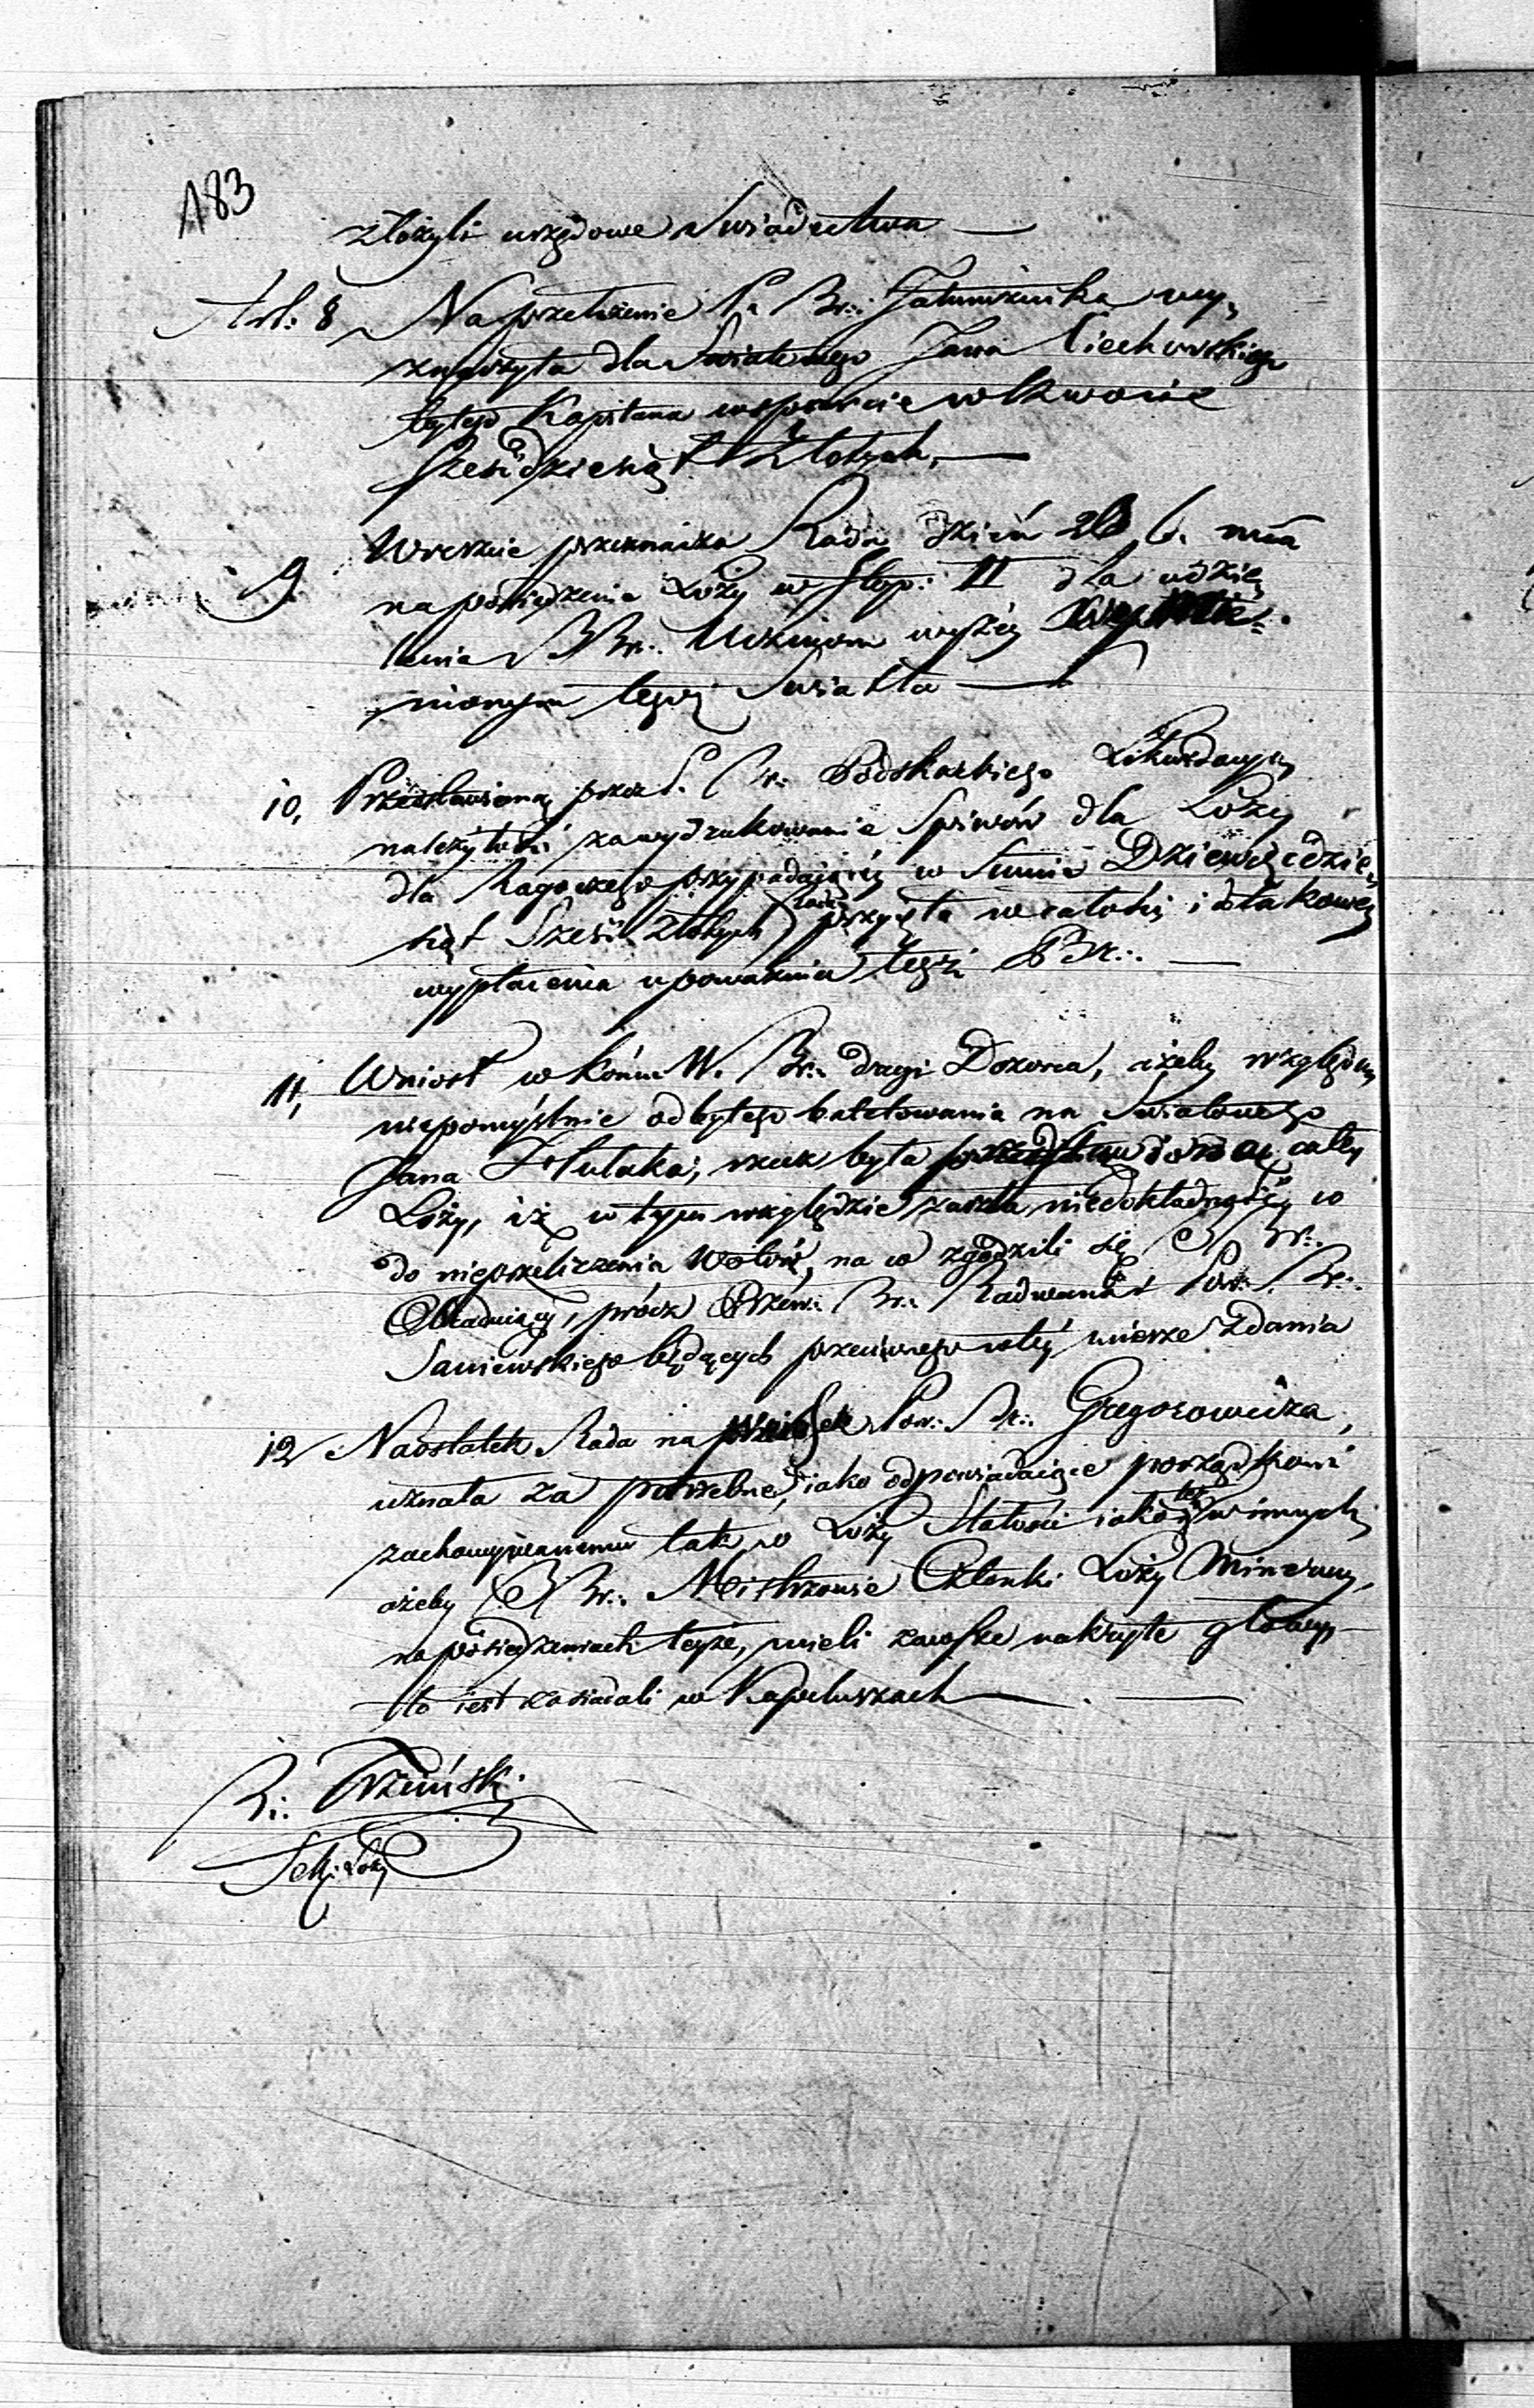 183
złożyli urzędowe Swiadectwa —
Art: 8 Na przełożenie P. Br∴ wy„
znaczyła dla Swiatowego Jana Ciechowskiego
byłego Kapitana wsparcie w kwocie
Sześćdziesiąt Złotych, —
9 Wreszcie przeznacza Rada dzień b. m
na posiedzenia Loży w Stop: II dla udzie„
lenia BBr∴ Uczniom wyżey
nionym tegoż Swiatła —
10, Przedstawioną przez P. Br∴ Podskarbiego Likwidacyę
należytości za wydrukowanie Spiwów dla Loży
dla Ragoczego przypadaiącéy w Summie Dziewięćdzie„
siąt Sześć Złotych Rada przyięła w całości i do takowey
wypłacenia upoważnia tegoż Br∴ —
11, Wniosł w końcu W. Br∴ drugi Dozorca, ażeby względem
niepomyślnie odbytego balotowania na Swiatowego
Jana rzecz była całey
Loży, iż w tym względzie zaszła niedokładność co
do nieprzeliczenia Wotów, na co zgodzili się BBr∴
Obradniący, prócz Przew∴ Br∴ Radwana i Pow∴ Br∴
Saniewskiego będących przeciwnego w téy mierze zdania
12 Naostatek Rada na wniosek Pow∴ Br∴ Gregorowicza,
uznała za potrzebne, iako odpowiadaiące porządkowi
zachowywanemu tak w Loży Stałości iako też w innych,
ażeby BBr∴ Mistrzowie Członki Loży Minerwy,
na posiedzeniach teyże, mieli zawsze nakryte głowy
to iest zasiadali w Kapeluszach — . —
Br∴ Trzciński
Sek: Loży